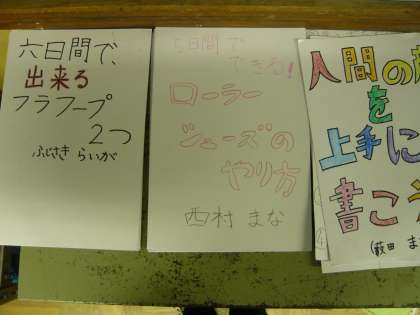 六日間で、
出来る
フラフープ
2つ
ふじさき らいが
5日間で
できる!
ローラー
シューズの
やり方
西村 まな
人間の
を
上手に
書こう
(薮田 ま